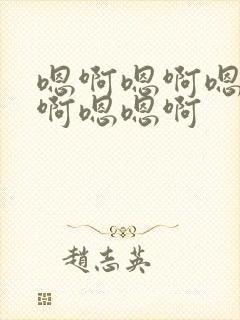 嗯啊嗯啊嗯
啊嗯嗯啊
趙志英